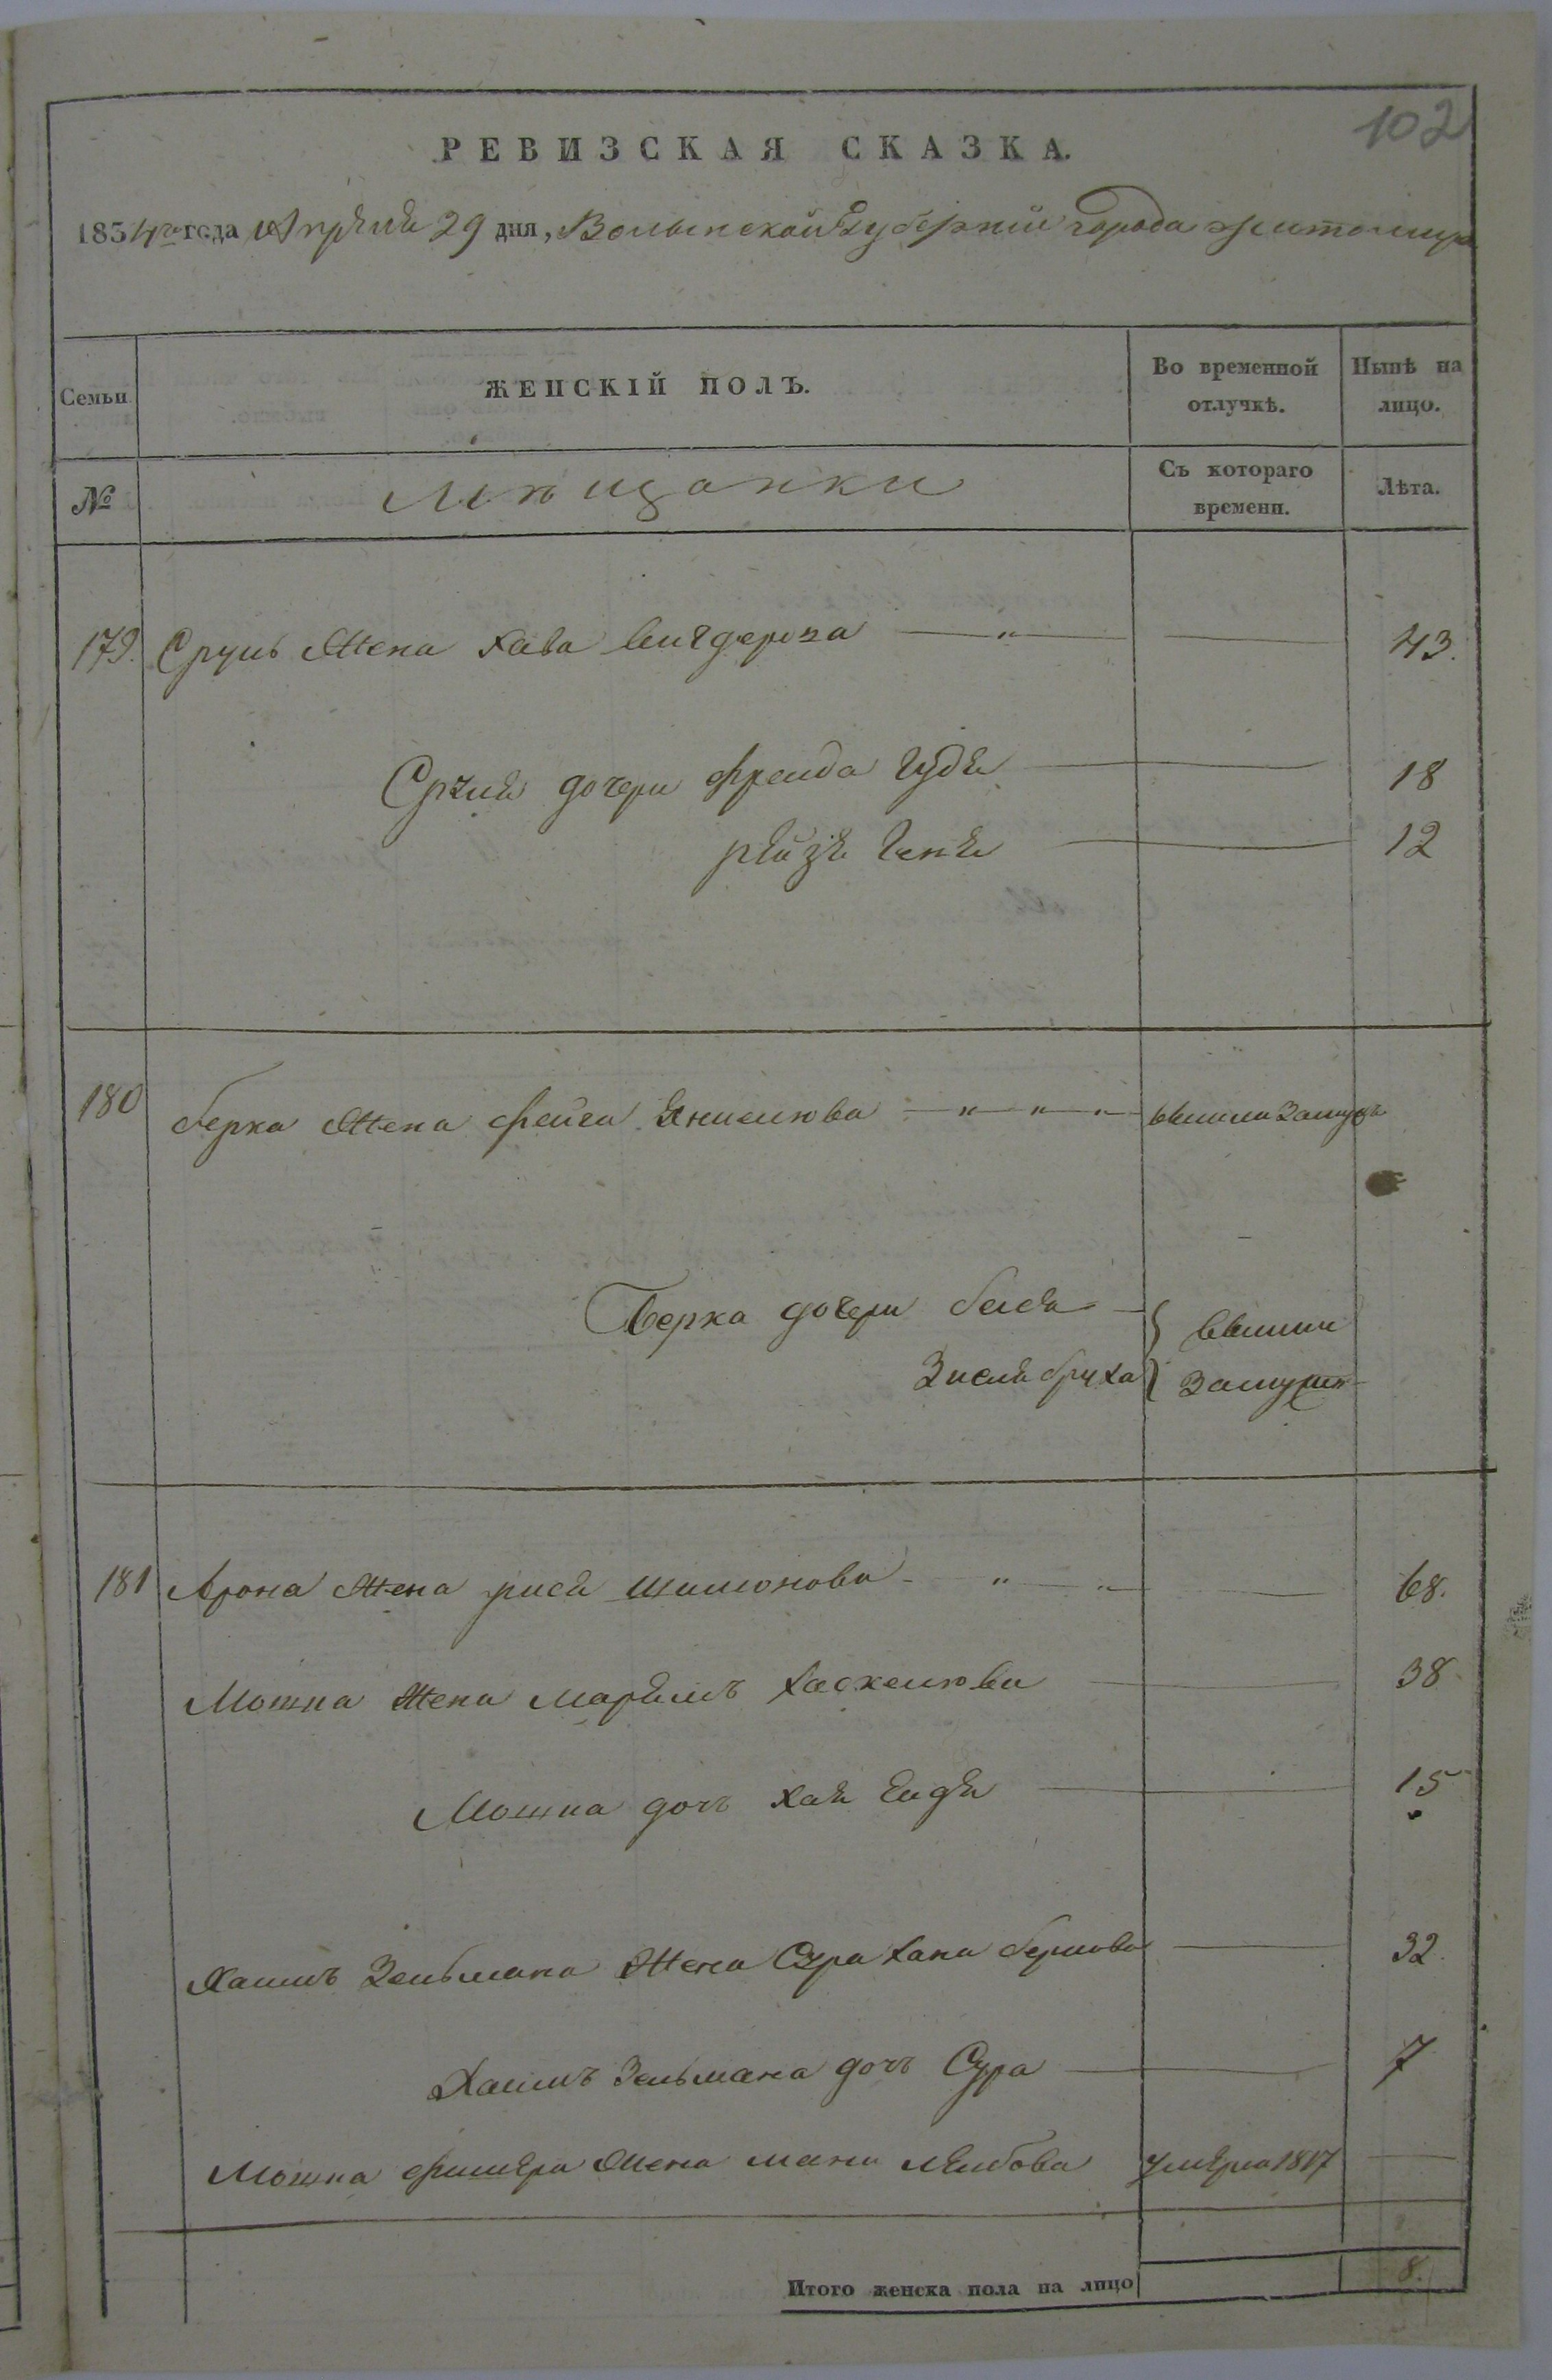 102
РЕВИЗСКАЯ СКАЗКА.
1834го года Апреля 29 дня, Волынской Губернии города Житомира
Семьи
ЖЕНСКІЙ ПОЛЪ.
Во временной отлучкѣ.
Нынѣ на лицо.
№
Мѣщанки
Съ котораго времени.
Лѣта.
179. Сруль Жена Хава 43.
дочери Фрейда Гудя 18
рейзя Геня 12
180 берка Жена фейга вышла Замужъ
Берка дочери бейля вышли
Зисля бруха Замужъ
181 Арона Жена рися шимонова 68.
Мошка Жена Маремъ Хаскелюва 38
Мошка дочь Хая 15
Хаимъ Зельмана Жена Сура Хана беркова 32.
Хаимъ Зельмана дочь Сура 7
Мошка Фишера Жена мани лейбова умерла 1817
Итого женска пола на лицо 8.